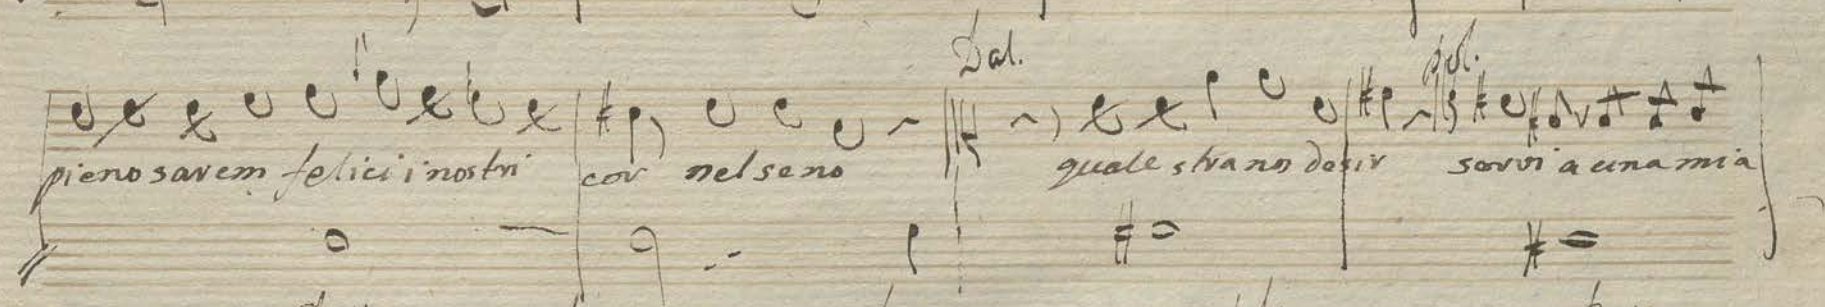 Dal. pol.
pieno sarem felici i nostri cor nel seno quale strano desir servi a una mia